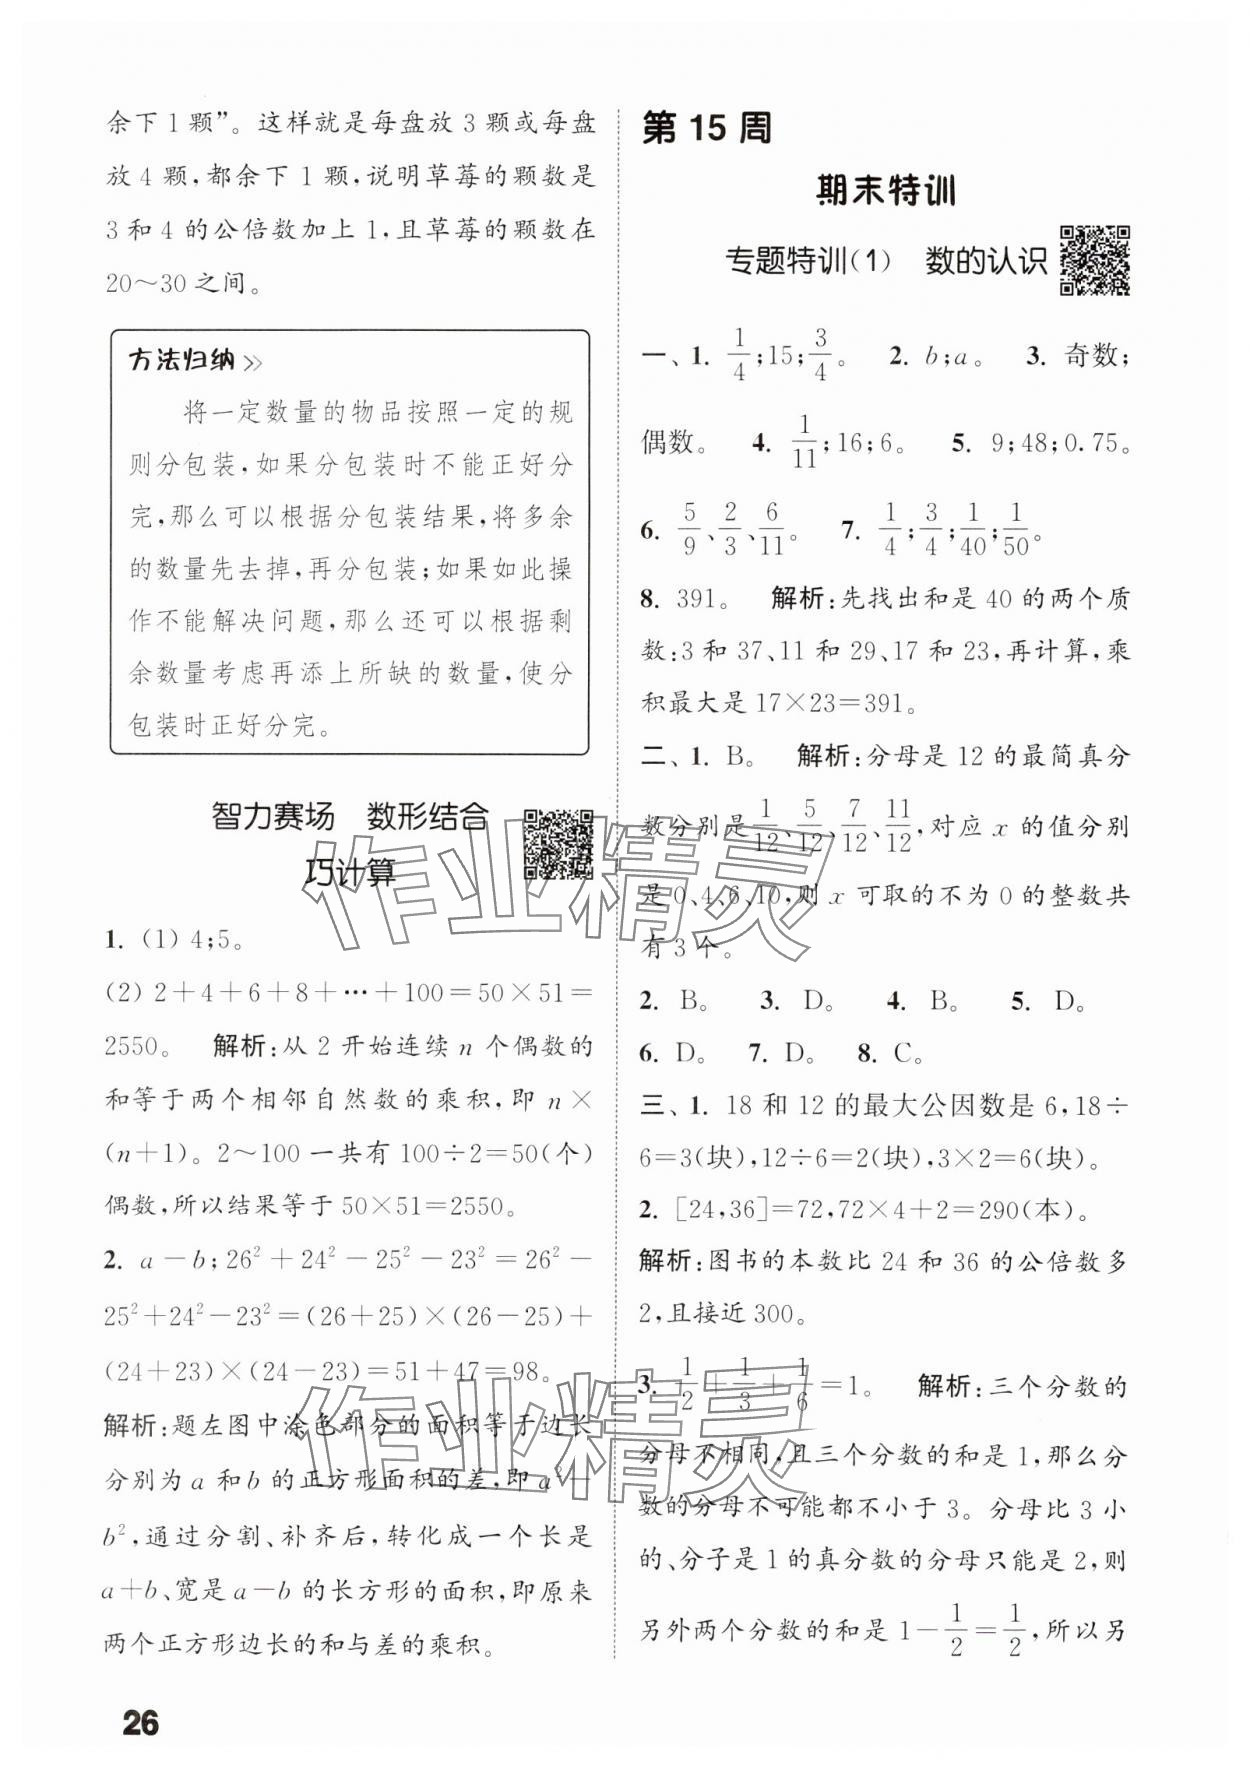 余下1颗”。这样就是每盘放3颗或每盘
放4颗,都余下1颗,说明草莓的颗数是
3和4的公倍数加上1,且草莓的颗数在
20～30之间。
方法归纳>>
将一定数量的物品按照一定的规
则分包装,如果分包装时不能正好分
完,那么可以根据分包装结果,将多余
的数量先去掉,再分包装;如果如此操
作不能解决问题,那么还可以根据剩
余数量考虑再添上所缺的数量,使分
包装时正好分完。
智力赛场 数形结合
巧计算
1. (1) 4;5。
(2) 2+4+6+8+…+100=50×51=
2550。 解析:从2开始连续n个偶数的
和等于两个相邻自然数的乘积,即n×
(n+1)。2～100一共有100÷2=50(个)
偶数,所以结果等于50×51=2550。
2. a-b;26²+24²-25²-23²=26²-
25²+24²-23²=(26+25)×(26-25)+
(24+23)×(24-23)=51+47=98。
解析:题左图中涂色部分的面积等于边长
分别为a和b的正方形面积的差,即a²-
b²,通过分割、补齐后,转化成一个长是
a+b、宽是a-b的长方形的面积,即原来
两个正方形边长的和与差的乘积。
26
第15周
期末特训
专题特训(1) 数的认识
一、1. 1/4;15;3/4。 2. b;a。 3. 奇数;
偶数。 4. 1/11;16;6。 5. 9;48;0.75。
6. 5/9、2/3、6/11。 7. 1/4;3/4;1/40;1/50。
8. 391。 解析:先找出和是40的两个质
数:3和37、11和29、17和23,再计算,乘
积最大是17×23=391。
二、1. B。 解析:分母是12的最简真分
数分别是1/12、5/12、7/12、11/12,对应x的值分别
是0、4、6、10,则x可取的不为0的整数共
有3个。
2. B。 3. D。 4. B。 5. D。
6. D。 7. D。 8. C。
三、1. 18和12的最大公因数是6,18÷
6=3(块),12÷6=2(块),3×2=6(块)。
2. [24,36]=72,72×4+2=290(本)。
解析:图书的本数比24和36的公倍数多
2,且接近300。
3. 1/2+1/3+1/6=1。 解析:三个分数的
分母不相同,且三个分数的和是1,那么分
数的分母不可能都不小于3。分母比3小
的、分子是1的真分数的分母只能是2,则
另外两个分数的和是1-1/2=1/2,所以另
作业精灵
作业精灵